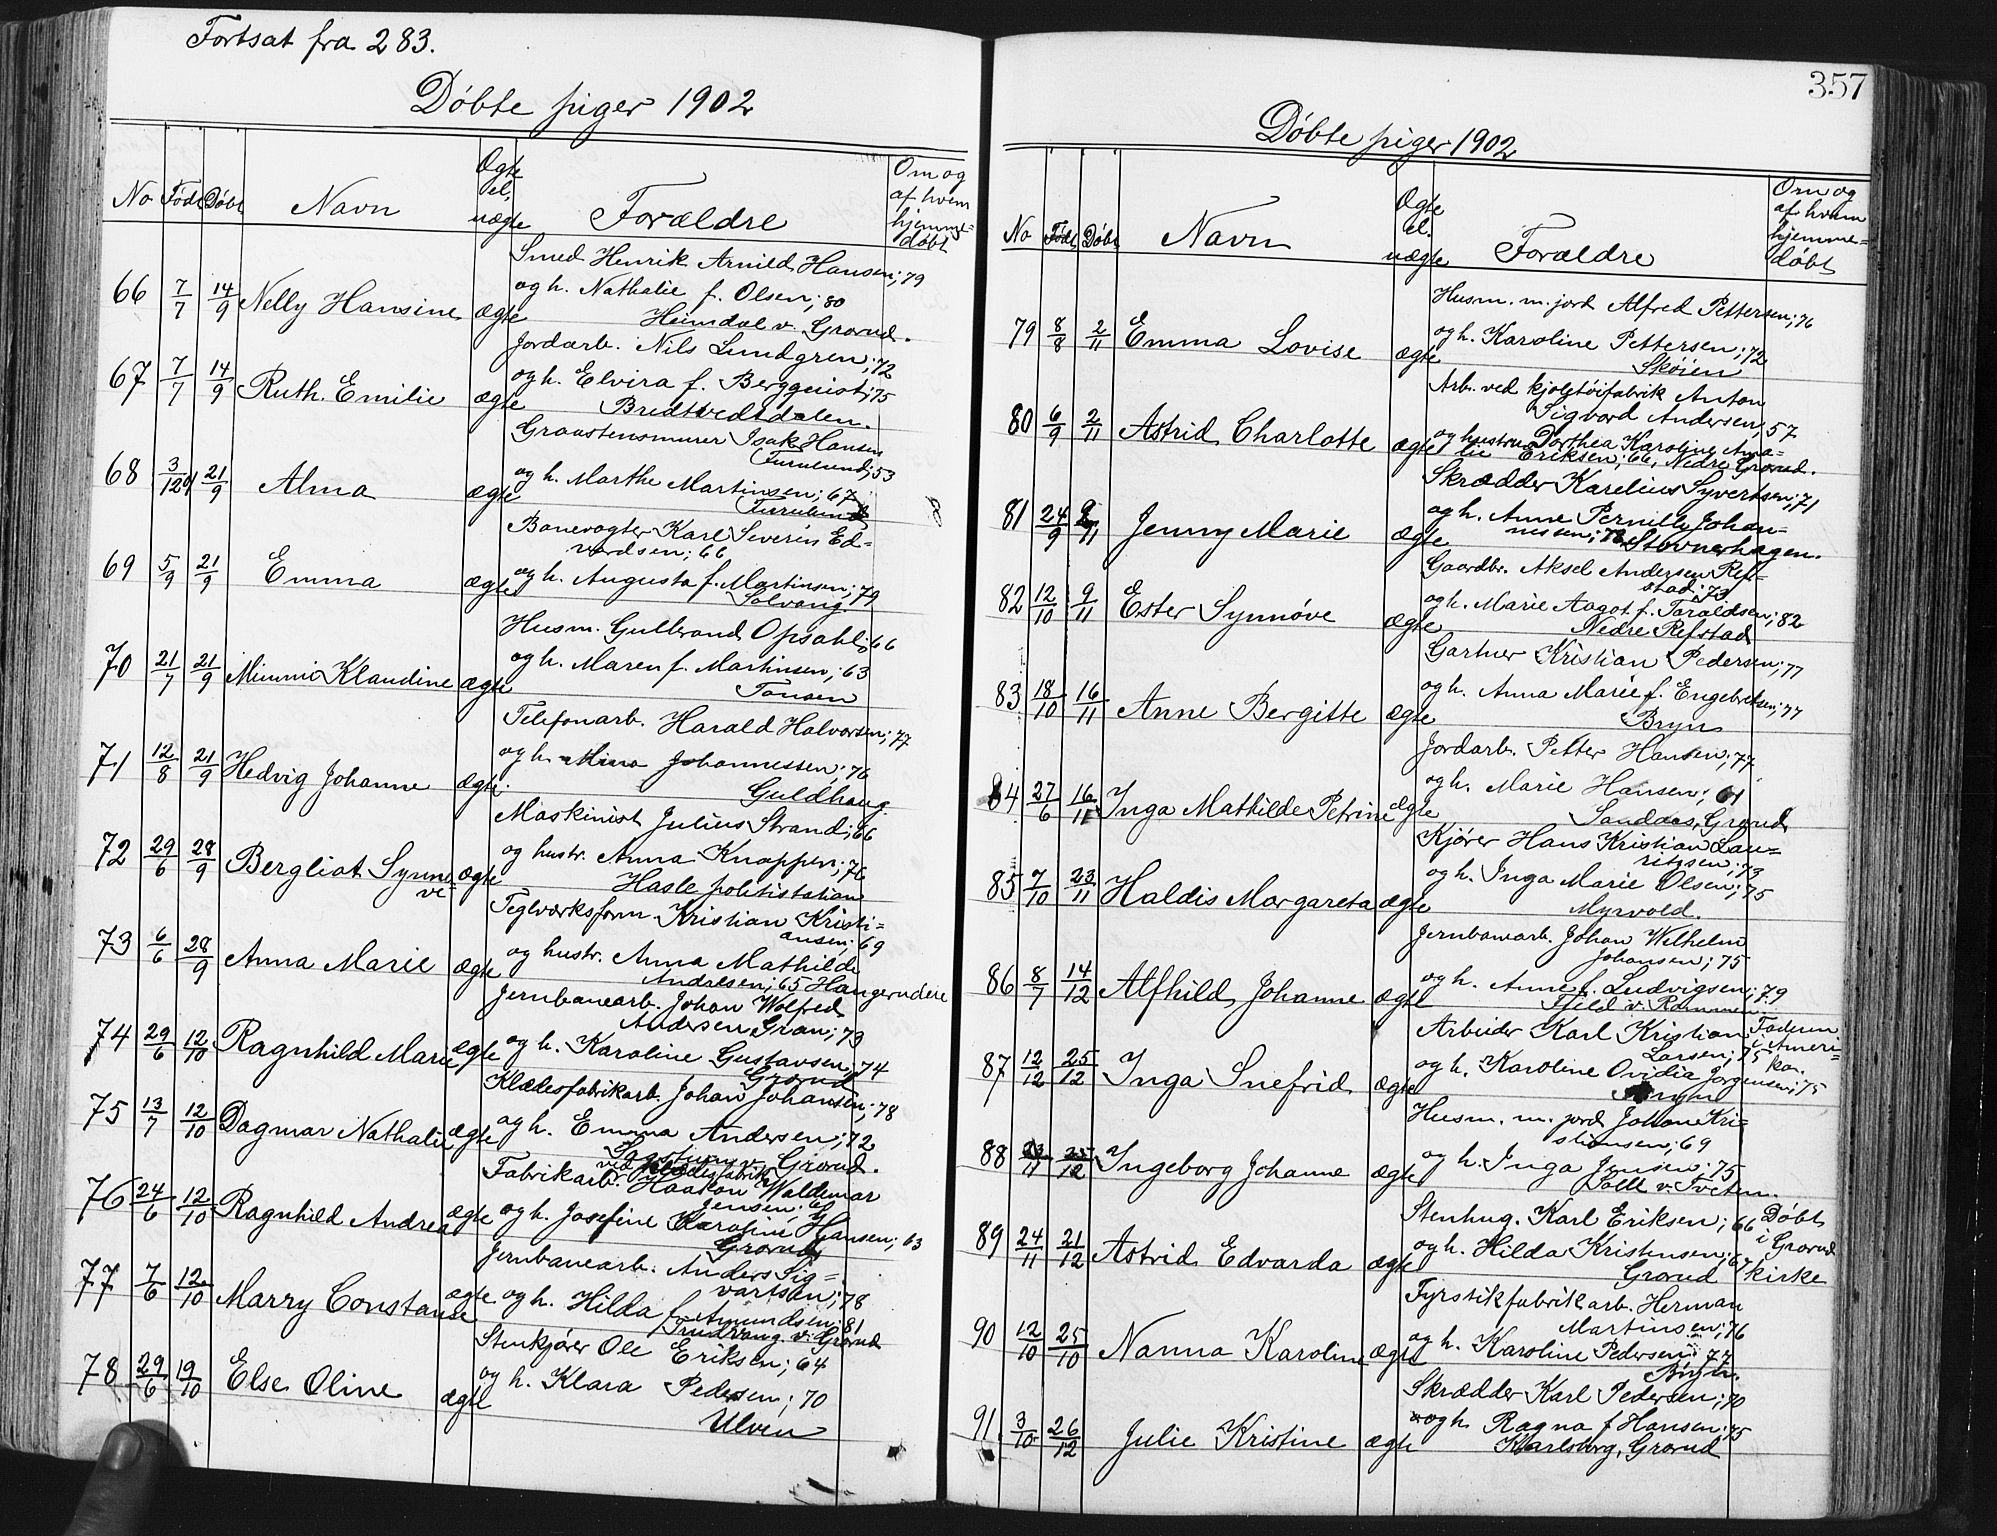 Fortsat fra 283.
Döbte piger 1902
No Född Döbt Navn Ægte el. uægte Forældre Om og af hvem hjemme=döbt
66 7/7 14/9 Nelly Hansine ægte Smed Henrik Arnild Hansen; 79
og h. Nathalie f. Olsen; 80
Heimdal v. Grorud.
67 7/7 14/9 Ruth Emilie ægte Jordarb. Nils Lundgren; 72
og h. Elvira f. Berggquist; 75
Bredtvedtdalen.
68 3/12 21/9 Alma ægte Graastensmurer Isak Hansen
Furulund; 53
og h. Marthe Martinsen; 67
Furulund
69 5/9 21/9 Emma ægte Banevogter Karl Severin Ed=
vardsen; 66
og h. Augusta f. Martinsen; 79
Solvang
70 21/7 21/9 Mimmi Klaudine ægte Husm. Gulbrand Opsahl; 66
og h. Maren f. Martinsen; 63
Tonsen
71 12/8 21/9 Hedvig Johanne ægte Telefonarb. Harald Halvorsen; 77
og h. Mina Johannessen; 76
Guldhaug
72 29/6 28/9 Bergliot Synnö
ve ægte Maskinist Julius Strand; 66
og hustr. Anna Knappen; 76
Hasle politistation
73 6/6 28/9 Anna Marie ægte Teglværksform. Kristian Kristi=
ansen; 69
og hustr. Anna Mathilde
Andresen; 65 Haugerudeie
74 29/6 12/10 Ragnhild Marie ægte Jernbanearb. Johan Wolfred
Andersen Gran; 73
og h. Karoline Gustavsen, 74
Grorud
75 13/7 12/10 Dagmar Nathalie ægte Klædesfabrikarb. Johan Johansen; 78
og h. Emma Andersen; 72
Grorud.
76 24/6 12/10 Ragnhild Andrea ægte ved klædesfabrik
Fabrikarb. Haakon Waldemar
Jensen;
og h. Josefine Karoline Hansen; 63
Grorud
77 7/6 12/10 Marry Constanse ægte Jernbanearb. Anders Sig=
vartsen; 78
og h. Hilda f. Amundsen; 81
Trudvang v. Grorud
78 29/6 19/10 Else Oline ægte Stenkjører Ole Eriksen; 64
og h. Klara Pedersen; 70
Ulven
357
Döbte piger 1902
No Född Döbt Navn Ægte el. uægte Forældre Om og af hvem hjemme=döbt
79 8/8 2/11 Emma Lovise ægte Husm. m. jord Alfred Pettersen; 76
og h. Karoline Pettersen; 72
Skøien
80 6/9 2/11 Astrid Charlotte ægte Arb. ved kjoletøifabrik Anton
Sigvard Andersen, 57
og hustru Dorthea Karoline Ama=
lie Eriksen; 66, Nedre Grorud.
81 24/9 2/11 Jenny Marie ægte Skrædder Karelius Syvertsen; 71
og h. Anne Pernille Johan=
nesen; 78 Stovnerhagen.
82 12/10 9/11 Ester Synnøve ægte Gaardbr. Aksel Andersen Ref=
stad; 73
og h. Marie Aagot f. Taraldsen; 82
Nedre Refstad
83 18/10 16/11 Anne Bergitte ægte Gartner Kristian Pedersen; 77
og h. Anna Marie f. Engebretsen; 77
Bryn
84 27/6 16/11 Inga Mathilde Petrine ægte Jordarb. Petter Hansen; 77
og h. Marie Hansen; 61
Sandaas, Grorud
85 7/10 23/11 Haldis Margareta ægte Kjører Hans Kristian Lau=
ritzsen; 73
og h. Inga Marie Olsen; 75
Myrvold.
86 8/7 14/12 Alfhild Johanne ægte Jernbanearb. Johan Wilhelm
Johansen; 75
og h. Anne f. Ludvigsen; 79
Fjeld v. Rommen
87 12/12 25/12 Inga Snefrid ægte Arbeider Karl Kristian
Larsen; 75
og h. Karoline Ovidia Jørgensen; 75
Bryn
Faderen
i Ameri=
ka.
88 23/11 25/12 Ingeborg Johanne ægte Husm. m. jord Johan Kri=
stiansen; 69
og h. Inga Jensen; 75
v. Tveten.
89 24/11 21/12 Astrid Edvarda ægte Stenhug. Karl Eriksen; 66
og h. Hilda Kristensen; 67
Grorud
Döbt
i Grorud
kirke
90 12/10 25/10 Nanna Karoline ægte Fyrstikfabrikarb. Herman
Martinsen; 76
og h. Karoline Pedersen; 77
Bryn.
91 3/10 26/12 Julie Kristine ægte Skrædder Karl Pedersen; 70
og h. Ragna f. Hansen; 75
Karlsborg, Grorud